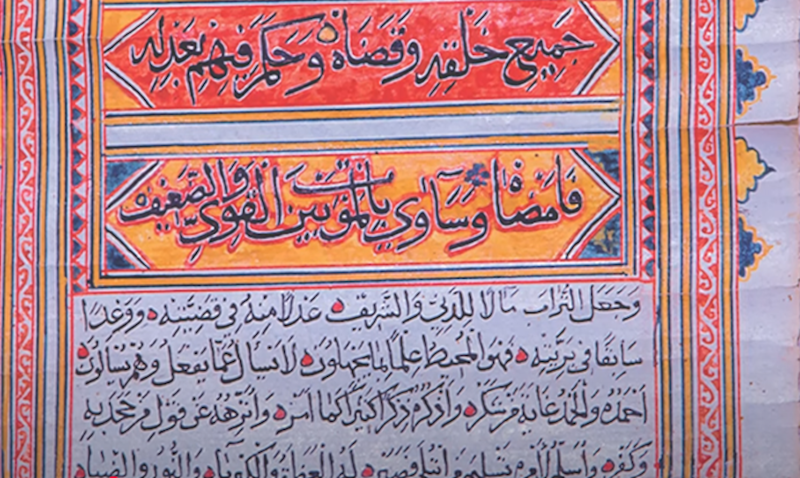 جميع خلقه وقضاه وحكم فيهم بعدله
فامضاه وساوي بالموت بين القوي والضعيف
وجعل التراب مآلا للدني والشريف عدلا منه في قضيته ووعدا
سابقا في بريته فهو المحيط علما بما يجهلون لا يسأل عما يفعل وهم يسألون
احمده والحمد غاية من شكره واذكره ذكرا كثيرا كما امر وانزهه عن قول من جحد به
وكفر واسلم لامره تسليم له العظمة والكبرياء والنور والضياء